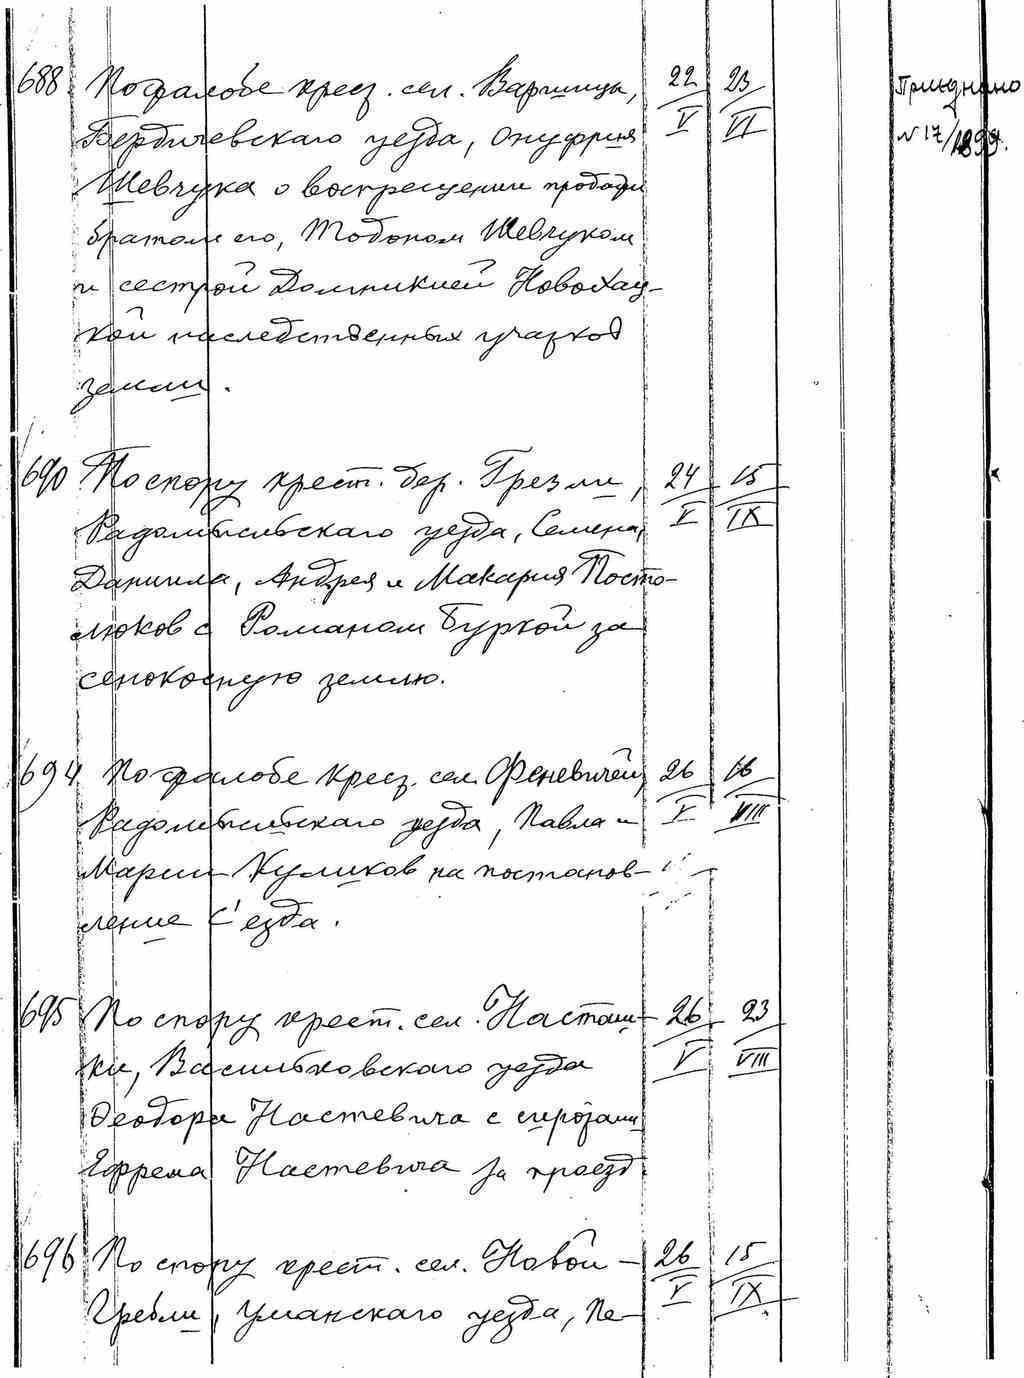 688 По жалобе крест. сел. Варшицы, 22/V 23/VI Приєднано
Бердичевскаго уезда, Онуфрия № 17/1899.
Шевчука о воспрещении продажи
братом его, Шевчуком
и сестрой Домникией Новохац-
кой наследственных участков
земли.
690 По спору крест. дер. Грезли, 24/V 15/IX
Радомысльскаго уезда, Семена,
Даниила, Андрея и Макария Посто-
люков с Романом Буркой за
сенокосную землю.
694 По жалобе крест. сел. Феневичей, 26/V 16/VIII
Радомысльскаго уезда, Павла и
Марии Куликов на постанов-
ление С'езда.
695 По спору крест. сел. Насташ- 26/V 23/VIII
ки, Васильковскаго уезда
Феодора Настевича с
Ефрема Настевича за проезд
696 По спору крест. сел. Новой- 26/V 15/IX
Гребли, Уманскаго уезда, Пе-